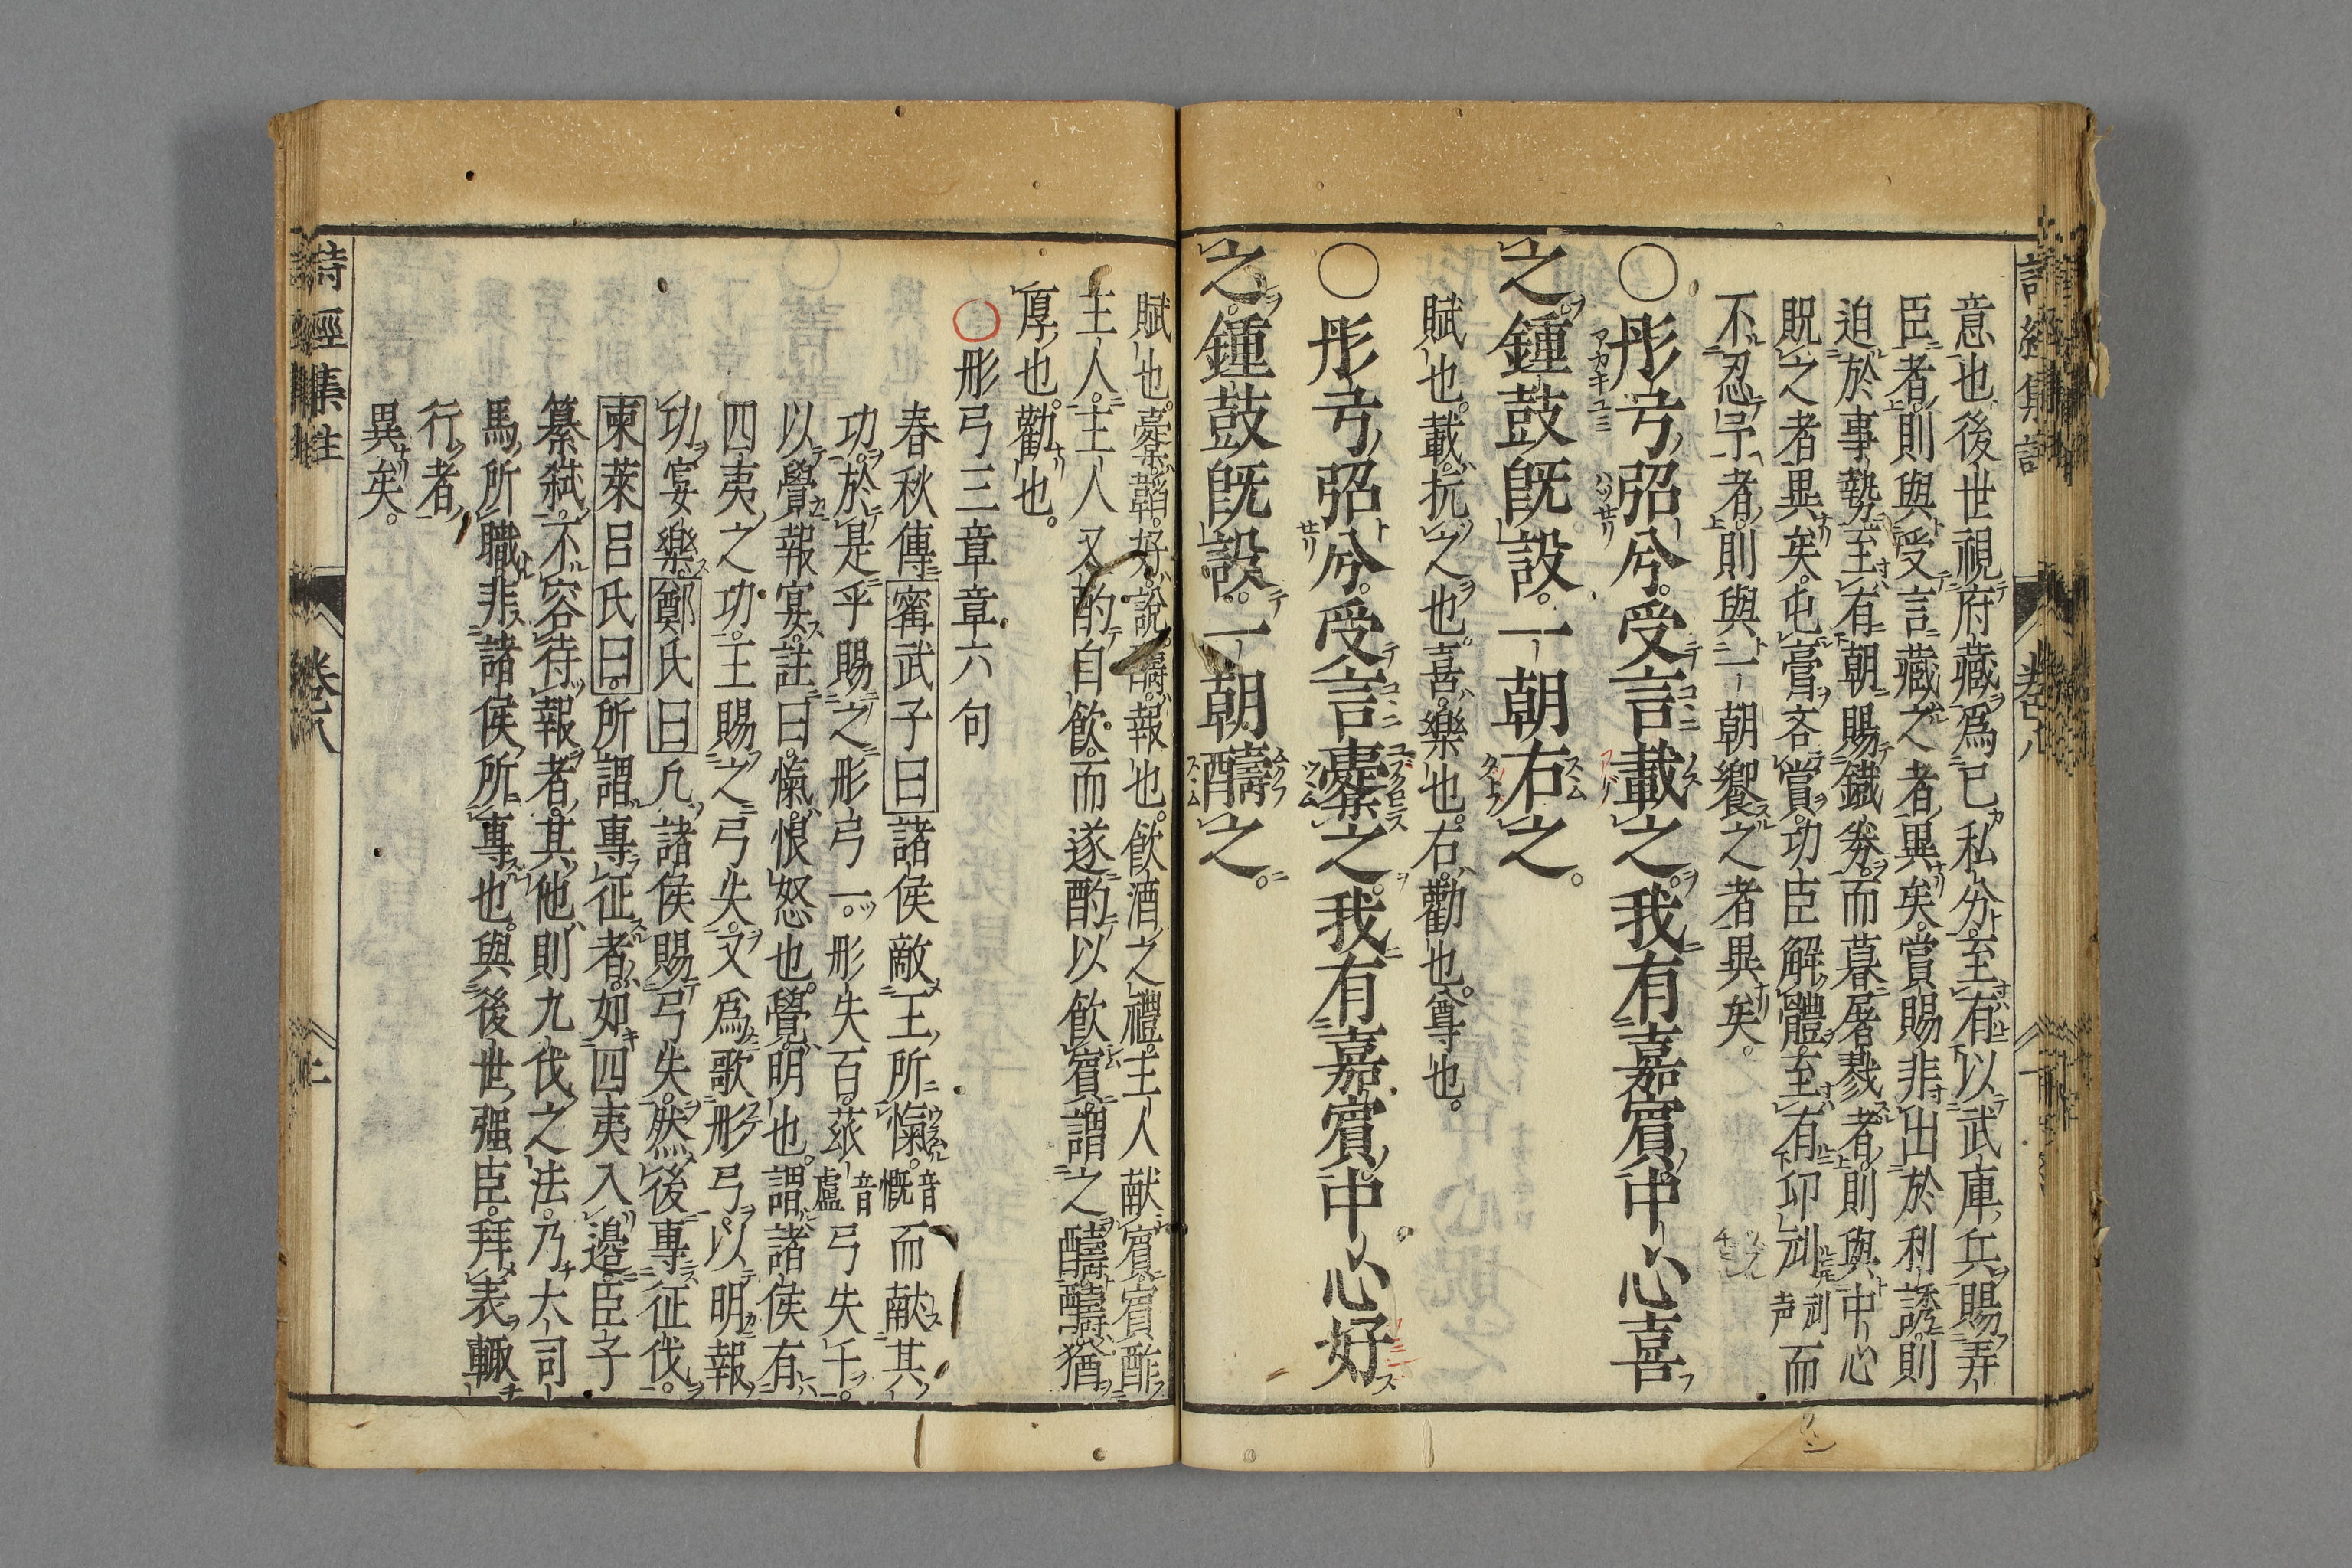 意也後世視府藏爲已私分至有以武庫兵賜弄
臣者則與受言藏之者異矣賞賜非出於利誘則
迫於事勢至有朝賜鐵券而暮屠戮者則與中心
貺之者異矣屯膏吝賞功臣解體至有印刓而
不忍予者則與一朝饗之者異矣
○彤弓弨兮受言載之我有嘉賓中心喜
之鍾鼓既設一朝右之
賦也載抗之也喜樂也右勸也尊也
○彤弓弨兮受言櫜之我有嘉賓中心好
之鍾鼓既設一朝醻之
賦也櫜韜好說醻報也飲酒之禮主人献賓賓酢
主人主人又酌自飲而遂酌以飲賓謂之醻醻猶
厚也勸也
○彤弓三章章六句
春秋傳甯武子曰諸侯敵王所愾音慨而献其
功於是乎賜之彤弓一彤矢百玈音盧弓矢千
以覺報宴註曰愾恨怒也覺明也謂諸侯有
四夷之功王賜之弓矢又爲歌彤弓以明報
功宴樂鄭氏曰凡諸侯賜弓矢然後專征伐
東萊呂氏曰所謂專征者如四夷入邉臣子
篡弑不容待報者其他則九伐之法乃大司
馬所職非諸侯所專也與後世强臣拜表輙
行者
異矣
詩經集註
卷六